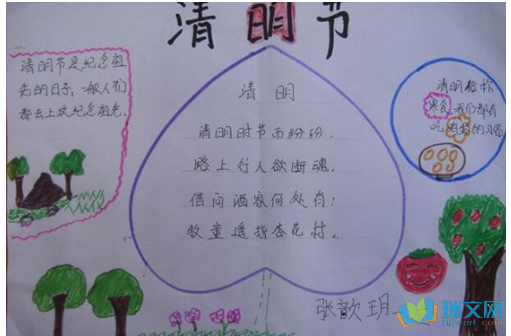 清明节
清明节是纪念祖
先的日子,一般人们
都去上坟纪念祖先.
清 明
清明时节雨纷纷.
路上行人欲断魂.
借问酒家何处有:
牧童遥指杏花村.
清明俗称
寒食.我们都有
的习俗
张歆玥
瑞文网